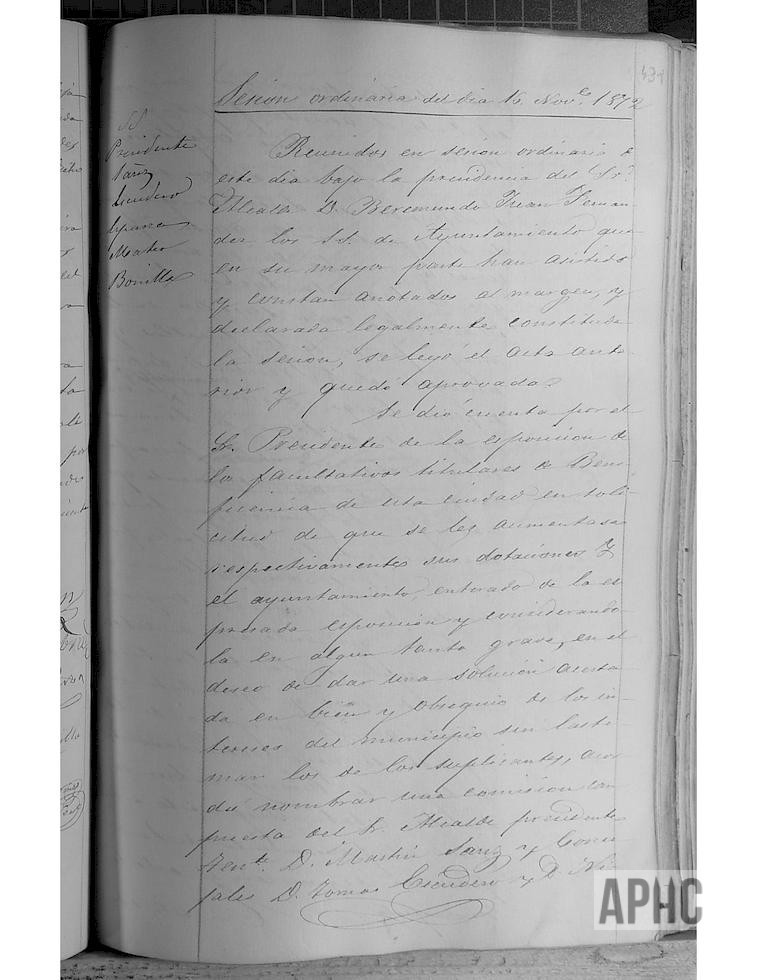 Sesion ordinaria del dia 16 Nov.e 1872
SS
Presidente
Sanz
Escudero
Mateo
Bonilla
Reunidos en sesion ordinaria
este dia bajo la presidencia del Sr.
Alcalde D. Beremundo Juan Fernan
dez los SS. de Ayuntamiento que
en su mayor parte han asistido
y constan anotados al margen, y
declarada legalmente constituida
la sesion, se leyó el acta ante-
rior y quedó aprovada.
Se dió cuenta por el
Sr. Presidente de la esposicion de
los facultativos titulares de Bene
ficencia de esta Ciudad en soli-
citud de que se les aumentasen
respectivamente sus dotaciones y
el ayuntamiento, enterado de la es
presada esposicion y considerando
la en algun tanto grave, en el
deseo de dar una solucion acerta
da en bien y obsequio de los in-
tereses del municipio sin lasti-
mar los de los suplicantes, acor
dó nombrar una comision com
puesta del Sr. Alcalde presidente
Ten.te D. Martin Sanz y Conce
jales D. Tomas Escudero y D. Ni-
APHC